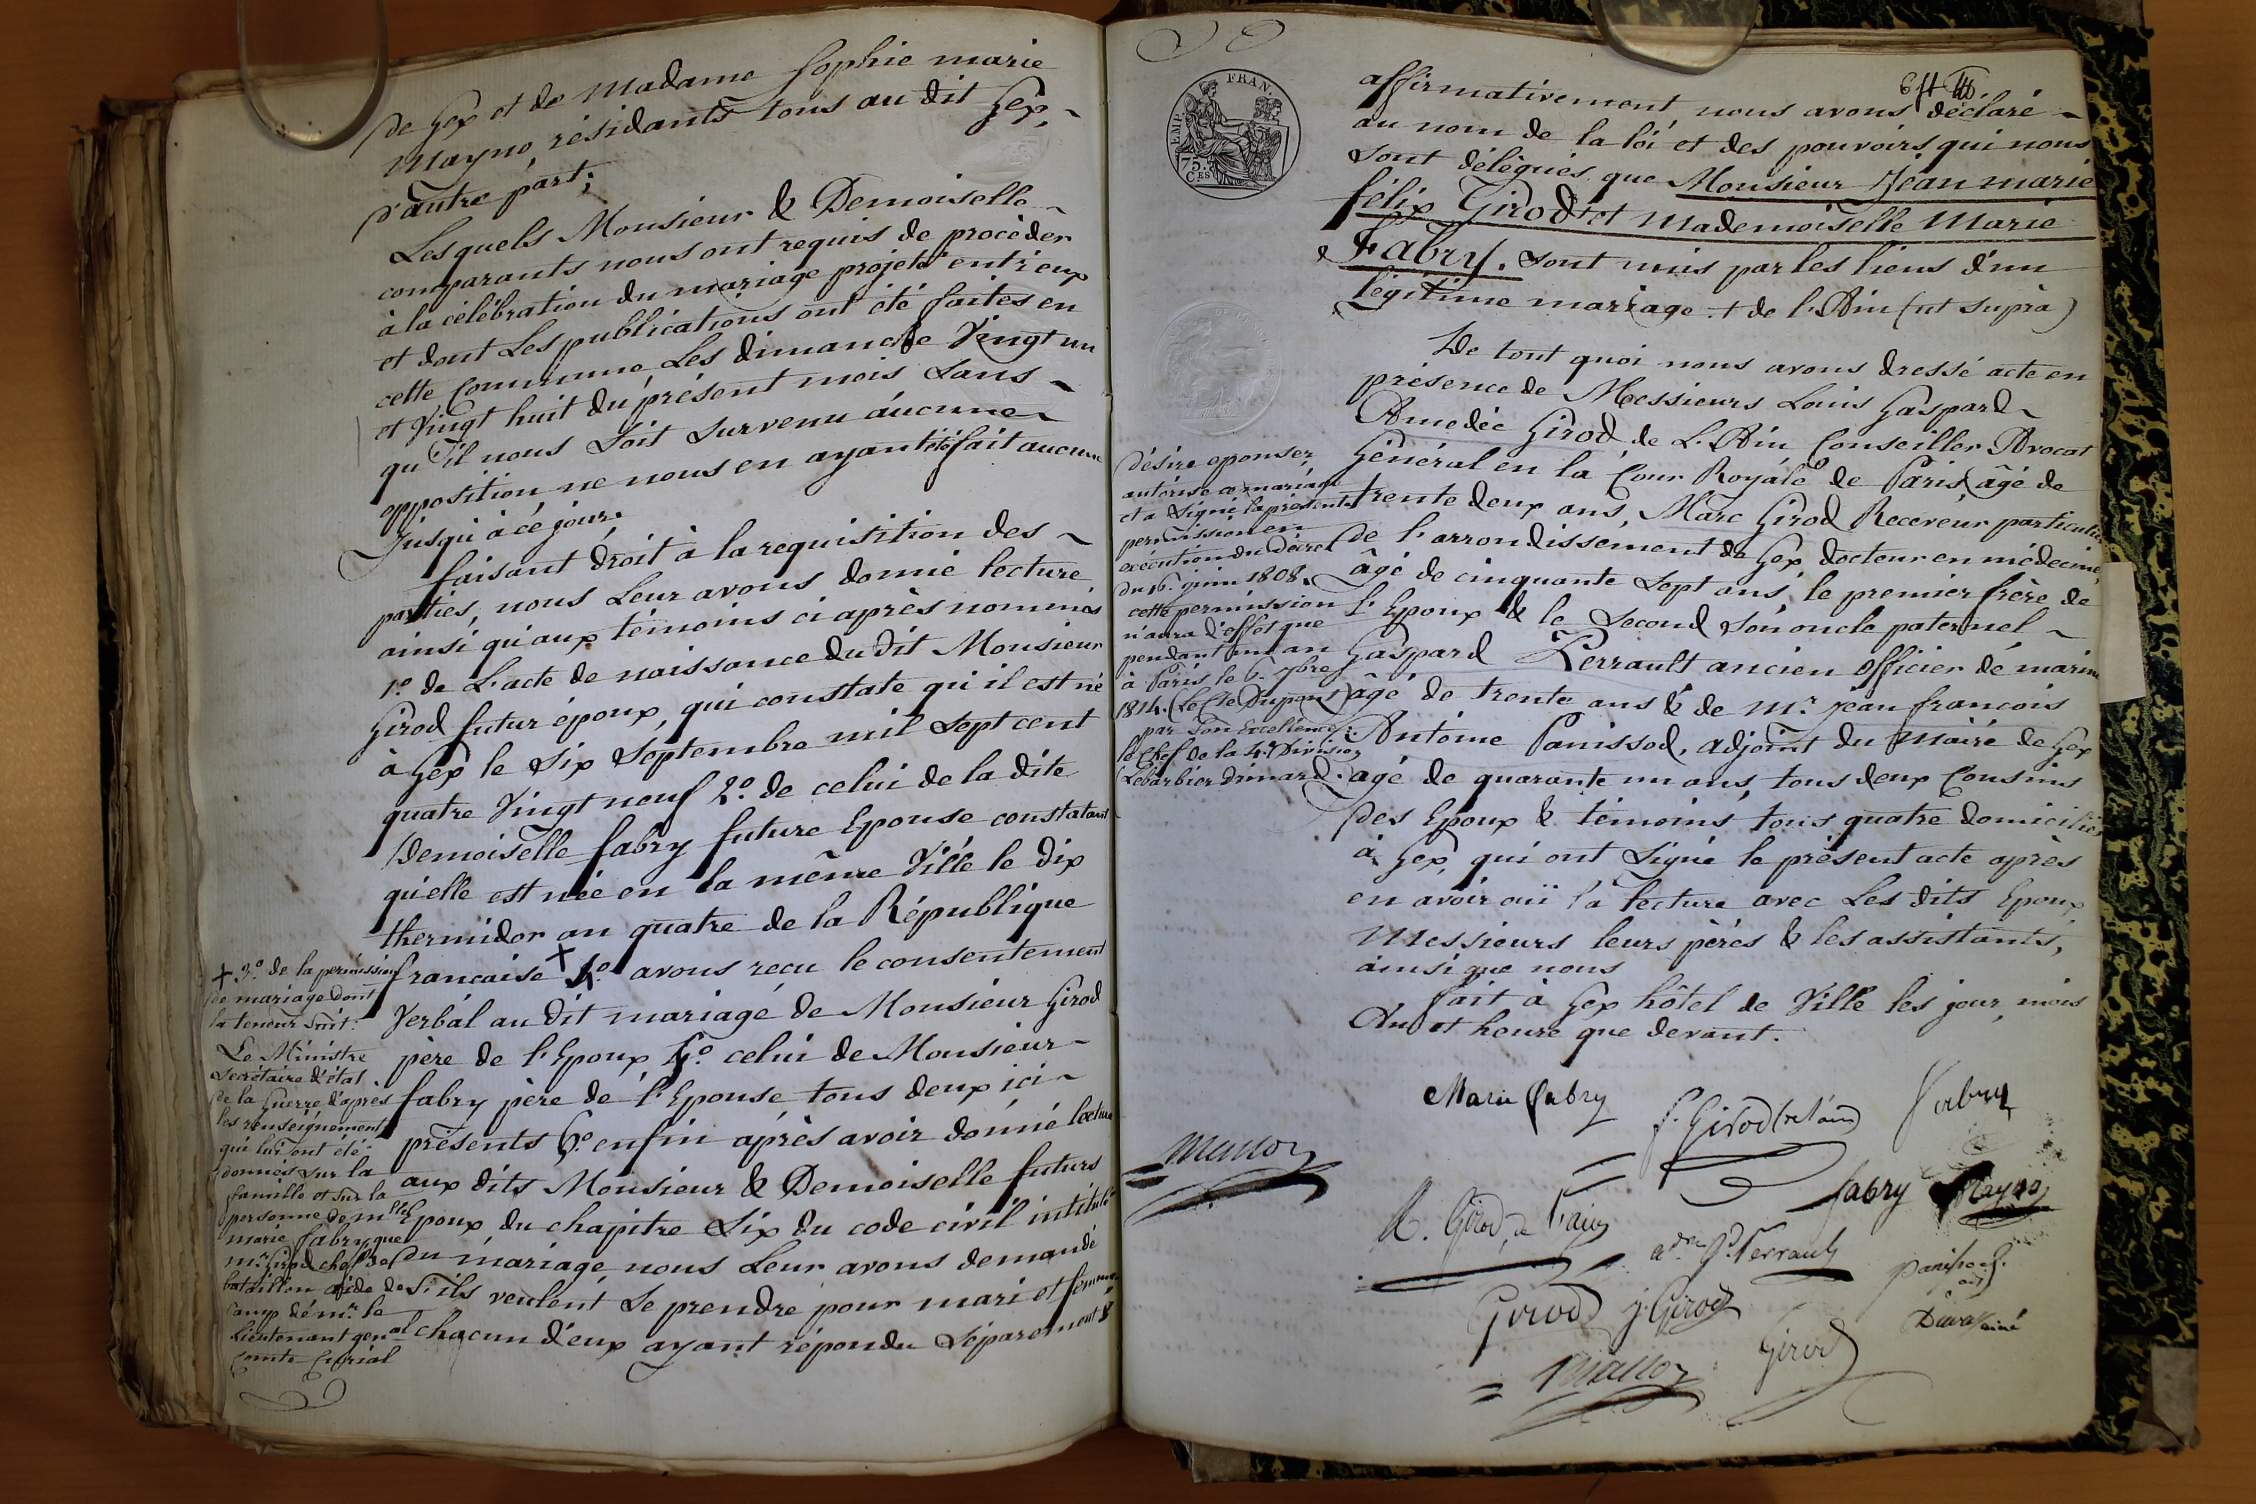 de Gex et de Madame Sophie marie
Mayno, résidants tous au dit Gex,
d'autre part;
Lesquels Monsieur & Demoiselle
comparants nous ont requis de procéder
à la célébration du mariage projeté entr'eux
et dont Les publications ont été faites en
cette Commune Les dimanche Vingt un
et Vingt huit du présent mois Sans
qu'il nous Soit Survenu aucune
opposition ne nous en ayant été fait aucune
Jusqu'à ce jour.
faisant droit à la requisition des
parties, nous Leur avons donné lecture
ainsi qu'aux témoins ci après nommés
1.º de L'acte de naissance du dit Monsieur
Girod futur époux, qui constate qu'il est né
à Gex le Six Septembre mil Sept cent
quatre Vingt neuf 2.º de celui de la dite
Demoiselle fabry future Epouse constatant
qu'elle est née en la même Ville le dix
thermidor an quatre de la République
francaise + 4.º avons recu le consentement
Verbal au dit mariage de Monsieur Girod
père de l'Epoux 5.º celui de Monsieur
fabry père de l'Epouse tous deux ici
présents 6.º enfin après avoir donné lecture
aux dits Monsieur & Demoiselle futurs
Epoux du chapitre Six du code civil intitulé
du mariage nous Leur avons demandé
S'ils veulent Se prendre pour mari et femme
chacun d'eux ayant répondu Séparement &
+ 3.º de la permission
de mariage dont
la teneur Suit:
Le Ministre
Secrétaire d'état
de la Guerre d'après
les renseignements
qui lui ont été
donnés Sur la
famille et Sur la
personne de mlle
marie fabry que
mr. Girod chef de
bataillon aide de
Camp de mr. le
Lieutenant genal
Comte Curial
EMP. FRAN.
75.
CES
affirmativement, nous avons déclaré
au nom de la loi et des pouvoirs qui nous
Sont délégués que Monsieur Jean marie
félix Girod et Mademoiselle Marie
Fabry. Sont unis par les liens d'un
légitime mariage. + de l'Ain (ut Supra)
De tout quoi nous avons dressé acte en
présence de Messieurs Louis Gaspard
Amedée Girod de L'Ain Conseiller Avocat
Général en la Cour Royale de Paris âgé de
trente deux ans, Marc Girod Receveur particulier
de l'arrondissement de Gex docteur en médecine,
âgé de cinquante Sept ans le premier frère de
l'Epoux & le Second Son oncle paternel
Gaspard Perrault ancien officier de marine
âgé de trente ans & de Mr. jean francois
Antoine Panissod, adjoint du Maire de Gex
agé de quarante un ans, tous deux Cousins
des Epoux & témoins tous quatre domiciliés
à Gex, qui ont Signé le présent acte après
en avoir ouï la lecture avec Les dits Epoux
Messieurs leurs pères & les assistants,
ainsi que nous
fait à Gex hôtel de Ville les jour, mois
An et heure que devant.
désire epouser
autorise ce mariage
et a Signé la présente
permission en
exécution du Décret
du 16. juin 1808.
cette permission
n'aura d'effet que
pendant un an
à Paris le 6. 7bre
1814. (Le Cte Dupont)
par Son Excellence:
le Chef de la 4e Division
(Lebarbier Dinard.
Marie Fabry
f. Girod (de l'ain)
Fabry
A. Girod, de l'ain
fabry Mayno
Gd. Perrault
panissod.
adj
Girod j. Girod
Girod